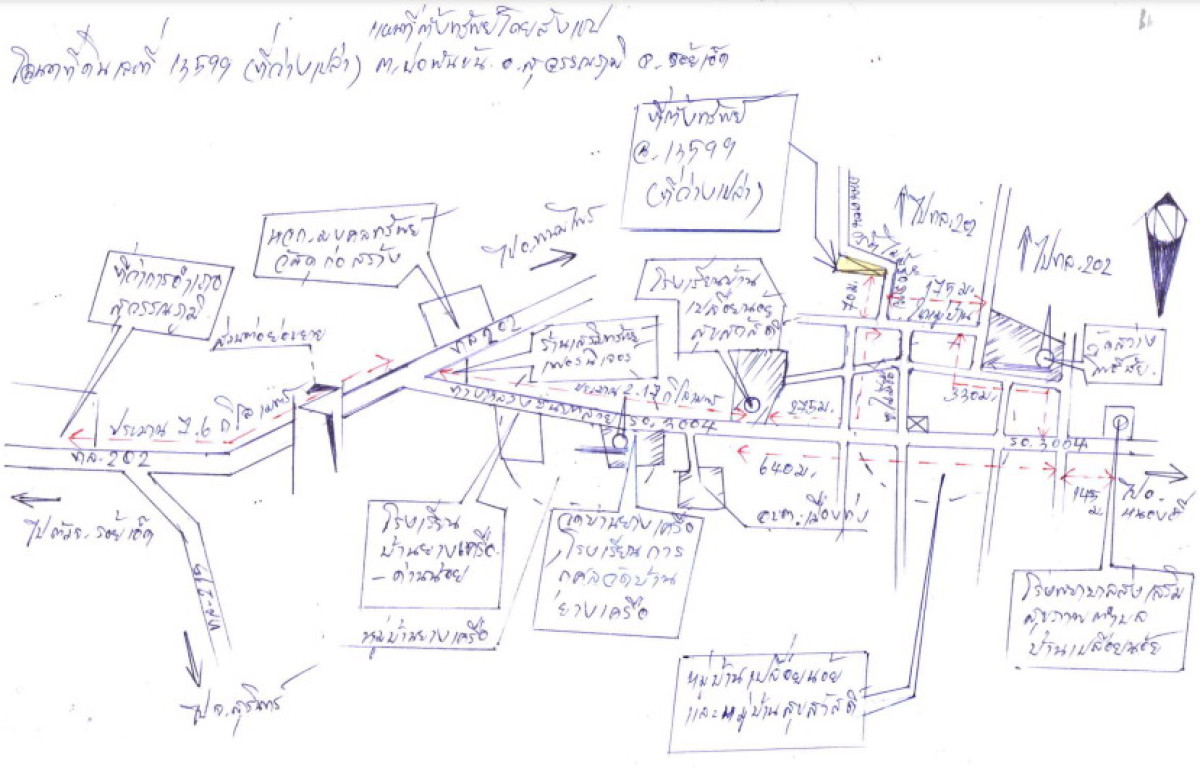 แผนที่ตั้งทรัพย์โดยสังเขป
โฉนดที่ดินเลขที่ 13599 (ที่ว่างเปล่า) ต.บ่อพันขัน อ.สุวรรณภูมิ จ.ร้อยเอ็ด
ที่ตั้งทรัพย์
ฉ.13599
(ที่ว่างเปล่า)
หจก.มงคลทรัพย์
วัสดุก่อสร้าง
ที่ว่าการอำเภอ
สุวรรณภูมิ
ไปทล.202
ไปทล.202
โรงเรียนบ้าน
เปลือยน้อย
สุขสวัสดิ์
175 ม.
70 ม.
ทล.202
ร้านเสริมทรัพย์
เฟอร์นิเจอร์
วัดสว่าง
โพธิ์ชัย
ประมาณ 2.17 กิโลเมตร
275 ม.
330 ม.
ประมาณ 7.6 กิโลเมตร
รอ.3004
รอ.3004
ทล.202
640 ม.
145
ม.
ไปตัวจ.ร้อยเอ็ด
อบต.
ไปอ.
หนองฮี
โรงเรียน
บ้านยางเครือ
-ด่านน้อย
วัดบ้านยางเครือ
โรงเรียนการ
กุศลวัดบ้าน
ยางเครือ
โรงพยาบาลส่งเสริม
สุขภาพตำบล
บ้านเปลือยน้อย
หมู่บ้านยางเครือ
หมู่บ้านเปลือยน้อย
และหมู่บ้านสุขสวัสดิ์
ไปจ.สุรินทร์